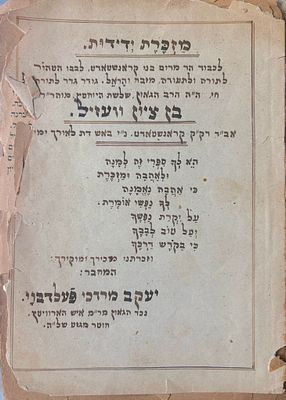 מזכרת ידידות.
לכבוד הר מרום בנו קראנשטאדט, לבבו הטהור
לתורה ולתעודה, גודר גדר לתורת
חי, ה״ה הרב הגאון, שלשת היוחסין, מוהר״ר
בן ציון וועזיל.
אב״ד דק״ק קראנשטאדט. נ״י באש דת לאורך ימי
הא לך ספרי זה למנה
ולאהבה ומזכרת
כי אהבה נאמנה
לך נפשי אומרת.
על יקרת נפשך
ועל טוב לבבך
כי בקדש דרכך
מכירך ומוקירך:
המחבר:
יעקב מרדכי פעלדבני.
נכד הגאון מר״מ איש הארוויטץ
חוטר מגזע של״ה.